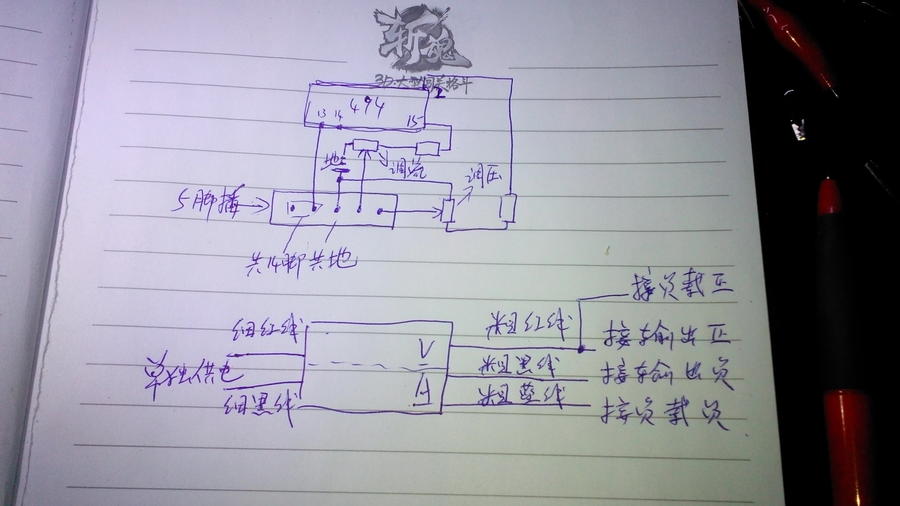 斩魂
3D·大型国术格斗
2
494
13 14 15
地
调流
调压
5脚插
共14脚共地
接负载正
细红线
粗红线
接输出正
V
单独供电
粗黑线
接输出负
A
细黑线
粗蓝线
接负载负